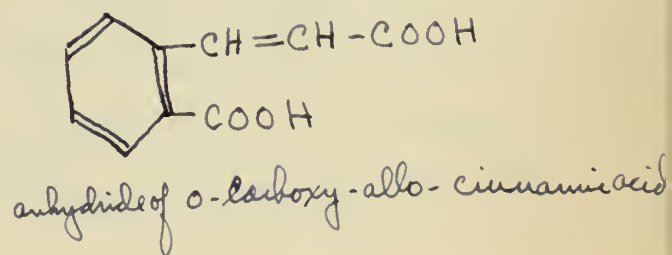 CH=CH-COOH
COOH
anhydride of o-carboxy-allo-cinnamic acid